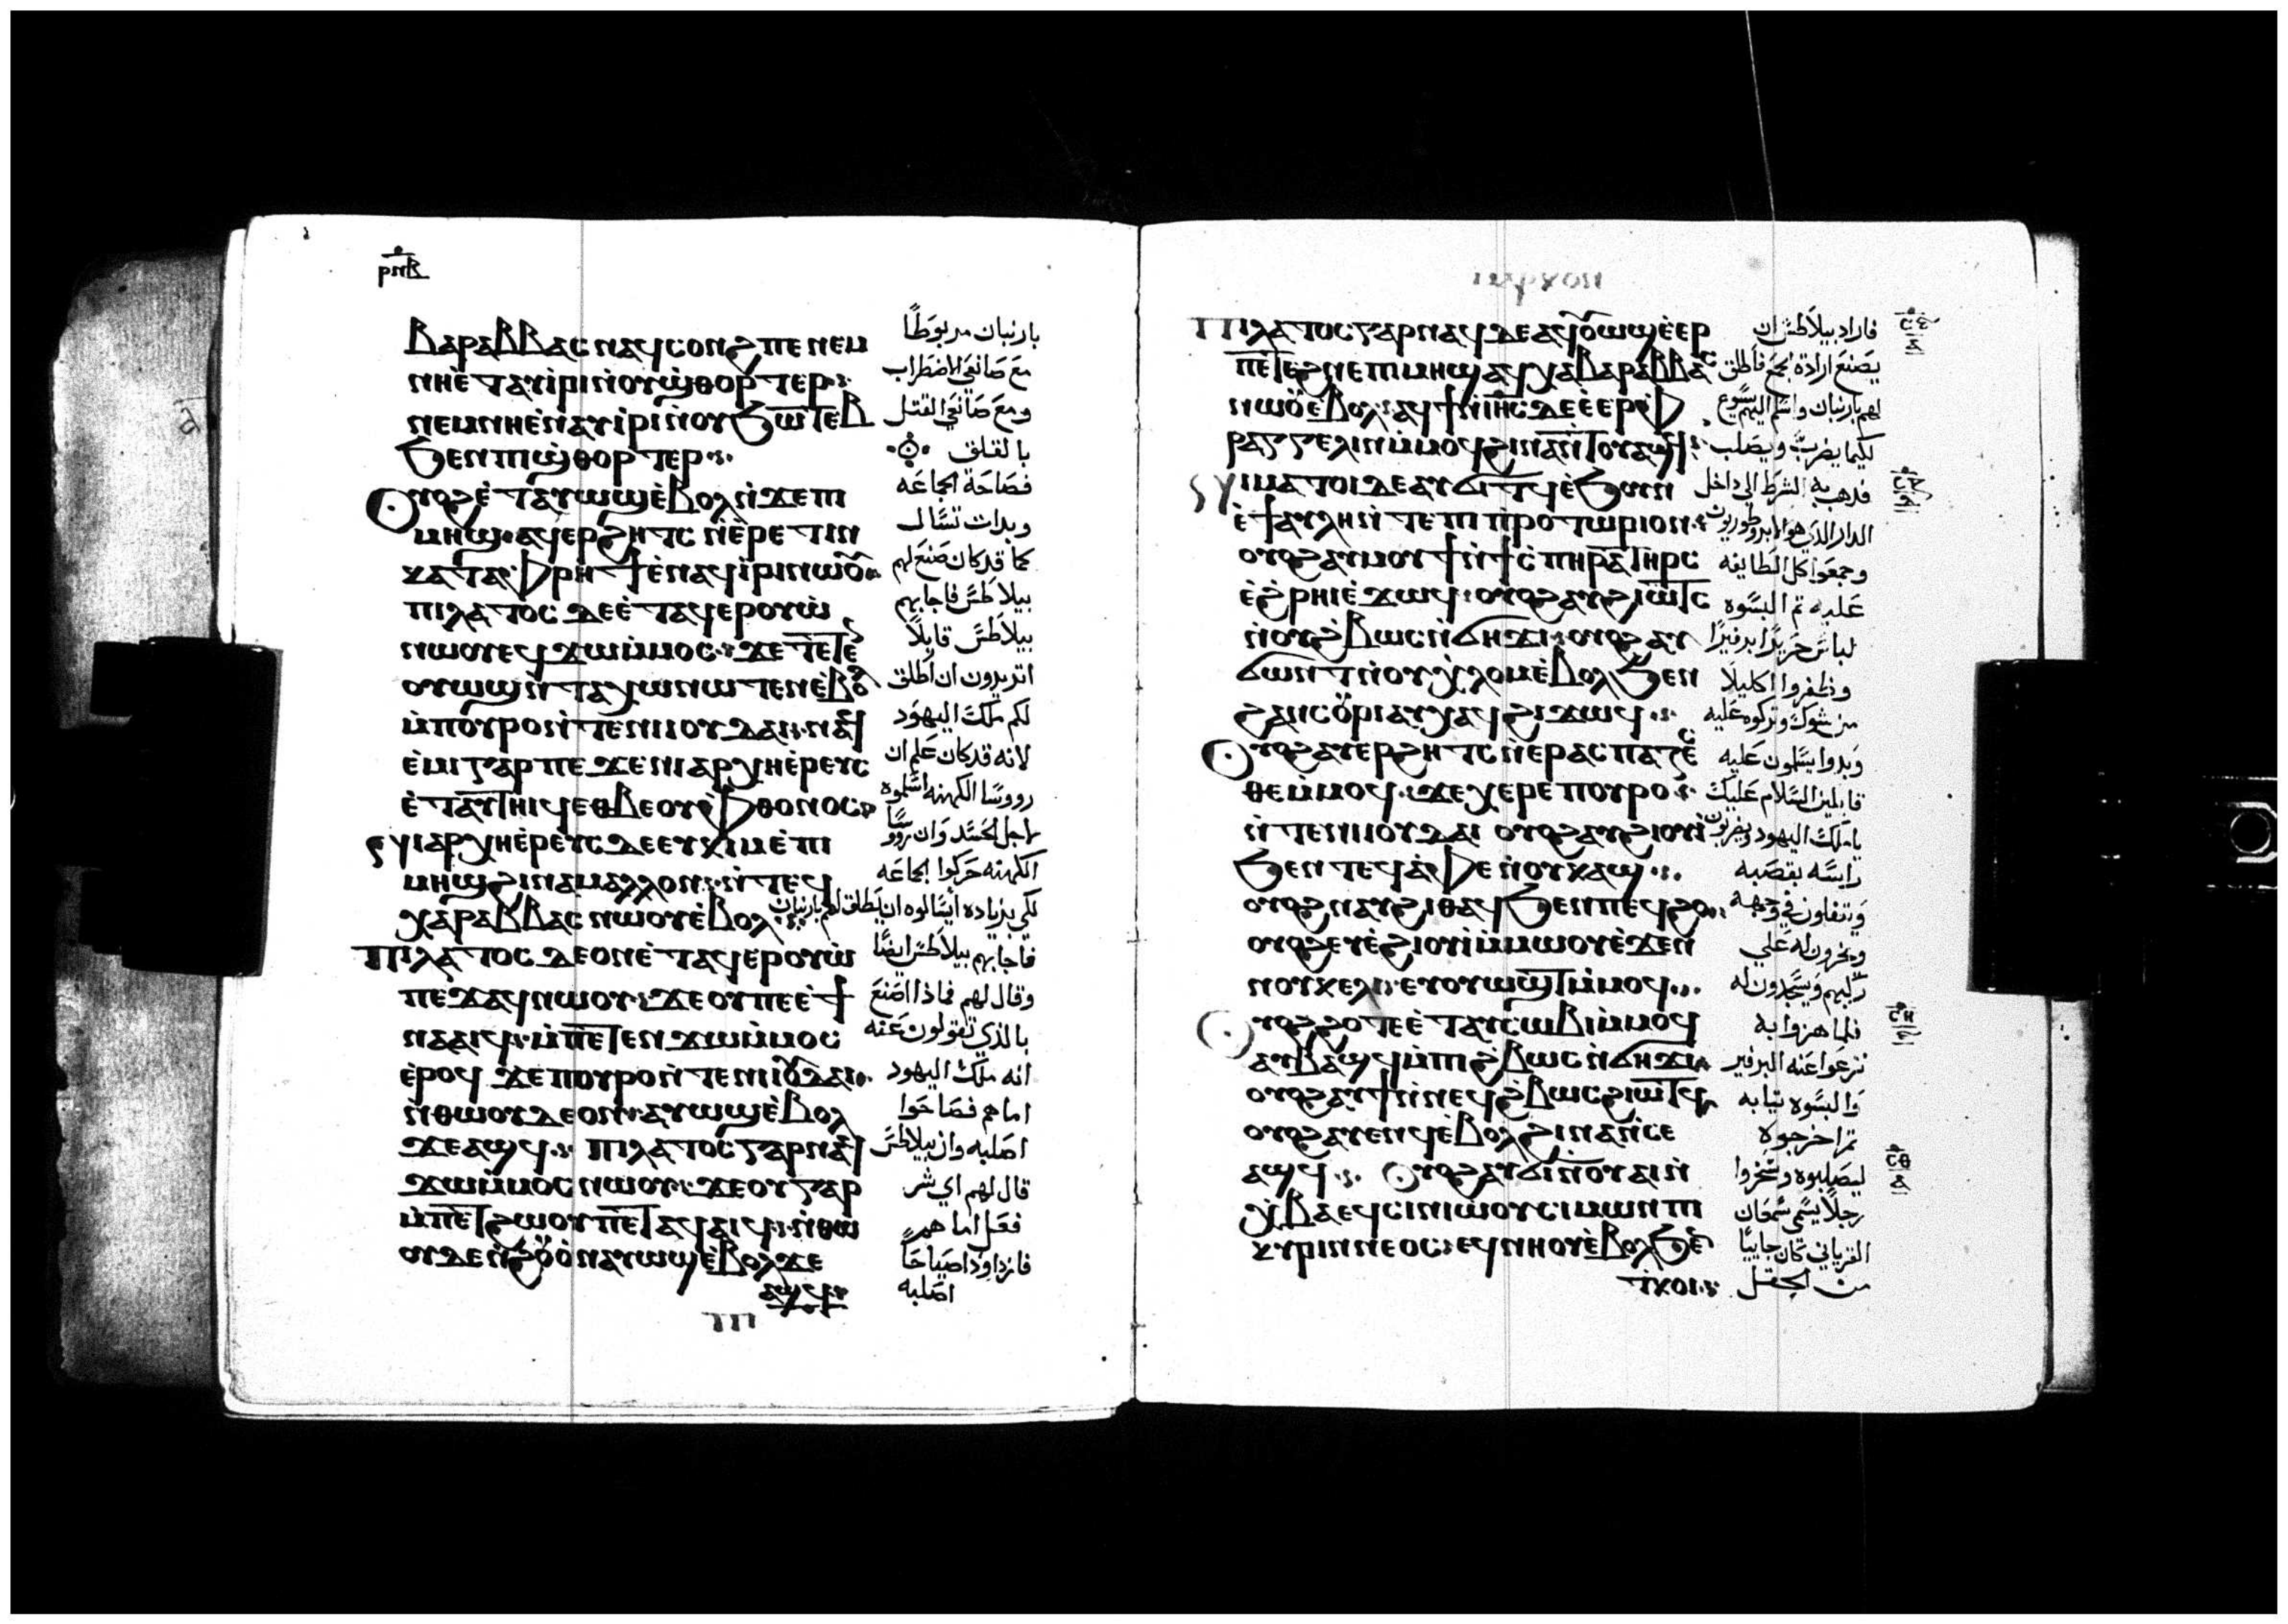 ⲣⲛⲃ
ⲃⲁⲣⲁⲃⲃⲁⲥ ⲛⲁϥⲥⲟⲛϩ ⲡⲉ ⲛⲉⲙ
ⲛⲏⲉ̀ⲧⲁⲩⲓⲣⲓ ⲛ̀ⲟⲩϣ̀ⲑⲟⲣⲧⲉⲣ
ⲛⲉⲙ ⲛⲏⲉ̀ⲛⲁⲩⲓ̀ⲣⲓ ⲛ̀ⲟⲩϧⲱⲧⲉⲃ
ϧⲉⲛ ⲡⲓϣ̀ⲑⲟⲣⲧⲉⲣ
ⲟⲩⲟϩ ⲉ̀ⲧⲁⲩⲱϣ ⲉ̀ⲃⲟⲗ ⲛ̀ϫⲉ ⲡⲓ
ⲙⲏϣ ⲁϥⲉⲣϩⲏⲧⲥ ⲛ̀ⲉ̀ⲣⲉⲧⲓⲛ
ⲕⲁⲧⲁ ⲫ̀ⲣⲏϯ ⲉ̀ⲛⲁϥⲓ̀ⲣⲓ ⲛⲱⲟⲩ
ⲡⲓⲗⲁⲧⲟⲥ ⲇⲉ ⲉ̀ⲧⲁϥⲉⲣⲟⲩⲱ̀
ⲛⲱⲟⲩ ⲉϥϫⲱ ⲙ̀ⲙⲟⲥ ϫⲉ ⲧⲉⲧⲉⲛ
ⲟⲩⲱϣ ⲛ̀ⲧⲁⲭⲱ ⲛⲱⲧⲉⲛ ⲉ̀ⲃⲟⲗ
ⲙ̀ⲡⲟⲩⲣⲟ ⲛ̀ⲧⲉ ⲛⲓⲓⲟⲩⲇⲁⲓ ⲛⲁϥ
ⲉ̀ⲙⲓ ⲅⲁⲣ ⲡⲉ ϫⲉ ⲛⲓⲁⲣⲭⲏⲉ̀ⲣⲉⲩⲥ
ⲉ̀ⲧⲁⲩⲧⲏⲓϥ ⲉⲑⲃⲉ ⲟⲩⲫ̀ⲑⲟⲛⲟⲥ
ⲛⲓⲁⲣⲭⲏⲉ̀ⲣⲉⲩⲥ ⲇⲉ ⲉⲩⲕⲓⲙ ⲉ̀ⲡⲓ
ⲙⲏϣ ϩⲓⲛⲁ ⲙⲁⲗⲗⲟⲛ ⲛ̀ⲧⲉϥ
ⲭⲁⲣⲁⲃⲃⲁⲥ ⲛⲱⲟⲩ ⲉ̀ⲃⲟⲗ
ⲡⲓⲗⲁⲧⲟⲥ ⲇⲉ ⲟⲛ ⲉ̀ⲧⲁϥⲉⲣⲟⲩⲱ̀
ⲡⲉϫⲁϥ ⲛⲱⲟⲩ ϫⲉ ⲟⲩ ⲡⲉ ⲉ̀ϯ
ⲛⲁⲁⲓϥ ⲙ̀ⲡⲉⲧⲉⲧⲉⲛϫⲱ ⲙ̀ⲙⲟⲥ
ⲉ̀ⲣⲟϥ ϫⲉ ⲡⲟⲩⲣⲟ ⲛ̀ⲧⲉ ⲛⲓⲓⲟⲩⲇⲁⲓ
ⲛ̀ⲑⲱⲟⲩ ⲇⲉ ⲟⲛ ⲁⲩⲱϣ ⲉ̀ⲃⲟⲗ
ϫⲉ ⲁϣϥ ⲡⲓⲗⲁⲧⲟⲥ ⲅⲁⲣ ⲛⲁϥ
ϫⲱ ⲙ̀ⲙⲟⲥ ⲛⲱⲟⲩ ϫⲉ ⲟⲩ ⲅⲁⲣ
ⲙ̀ⲡⲉⲧϩⲱⲟⲩ ⲡⲉⲧⲁϥⲁⲓϥ ⲛ̀ⲑⲱ
ⲟⲩ ⲇⲉ ⲛ̀ϩⲟⲩⲟ̀ ⲛⲁⲩⲱϣ ⲉ̀ⲃⲟⲗ ϫⲉ
ⲁϣϥ
ⲡⲓ
بارنبان مربوطًا
مع صانعي الاضطراب
ومع صانعي القتل
بالقلق
فصاحة الجماعه
وبدات تسال
كما قد كان صنع لهم
بيلاطس فاجابهم
بيلاطس قايلاً
اتريدون ان اطلق
لكم ملك اليهود
لانه قد كان علم ان
رووسا الكهنه اسلموه
لاجل الحسد وان رووسا
الكهنه حركوا الجماعه
لكي بزياده ايسالوه ان يطلق لهم بارنبان
فاجابهم بيلاطس ايضًا
وقال لهم فماذا اصنع
بالذي تقولون عنه
انه ملك اليهود
اما هم فصاحوا
اصلبه وان بيلاطس
قال لهم اي شر
فعل اما هم
فازدادوا صياحًا
اصلبه
ⲡⲓⲗⲁⲧⲟⲥ ⲅⲁⲣ ⲛⲁϥ ⲇⲉ ⲁϥⲟⲩⲱϣ ⲉ̀ⲉⲣ
ⲡⲉⲧⲉϩⲛⲉ ⲡⲓⲙⲏϣ ⲁϥⲭⲁⲃⲁⲣⲁⲃⲃⲁⲥ
ⲛⲱⲟⲩ ⲉ̀ⲃⲟⲗ ⲁϥϯ ⲛ̀ⲓⲏⲥ ⲇⲉ ⲉ̀ⲉⲣⲫ̀
ⲣⲁⲅⲅⲉⲗⲓⲛ ⲙ̀ⲙⲟϥ ϩⲓⲛⲁ ⲛ̀ⲧⲟⲩⲁϣϥ
ⲛⲓⲙⲁⲧⲟⲓ ⲇⲉ ⲁⲩϭⲓⲧϥ ⲉ̀ϧⲟⲩⲛ
ⲉ̀ϯⲁⲩⲗⲏ ⲛ̀ⲧⲉ ⲡⲓⲡ̀ⲣⲟⲧⲱⲣⲓⲟⲛ
ⲟⲩⲟϩ ⲁⲩⲙⲟⲩϯ ⲛ̀ϯⲥ̀ⲡⲏⲣⲁ ⲧⲏⲣⲥ
ⲉ̀ϩ̀ⲣⲏⲓ ⲉ̀ϫⲱϥ ⲟⲩⲟϩ ⲁⲩϩⲓⲱⲧⲥ
ⲛ̀ⲟⲩϩ̀ⲃⲱⲥ ⲛ̀ϭⲏϫⲓ ⲟⲩⲟϩ ⲁⲩ
ϭⲱⲛⲧ ⲛ̀ⲟⲩⲭ̀ⲗⲟⲙ ⲉ̀ⲃⲟⲗ ϧⲉⲛ
ϩⲁⲛⲥⲟⲩⲣⲓ ⲁⲩⲭⲁϥ ϩⲓϫⲱϥ
ⲟⲩⲟϩ ⲁⲩⲉⲣϩⲏⲧⲥ ⲛ̀ⲉⲣⲁⲥⲡⲁⲍⲉⲥ
ⲑⲉ ⲙ̀ⲙⲟϥ ϫⲉ ⲭⲉⲣⲉ ⲡⲟⲩⲣⲟ
ⲛ̀ⲧⲉ ⲛⲓⲓⲟⲩⲇⲁⲓ ⲟⲩⲟϩ ⲁⲩϩⲓⲟⲩⲓ̀
ϧⲉⲛ ⲧⲉϥⲁ̀ⲫⲉ ⲛ̀ⲟⲩⲕⲁϣ
ⲟⲩⲟϩ ⲛⲁⲩϩⲓⲑⲁϥ ϧⲉⲛ ⲡⲉϥϩⲟ
ⲟⲩⲟϩ ⲉⲩⲉ̀ϩⲓⲟⲩⲓ̀ ⲙ̀ⲙⲱⲟⲩ ⲉ̀ϫⲉⲛ
ⲛⲟⲩⲕⲉⲗⲓ ⲉⲩⲟⲩⲱϣⲧ ⲙ̀ⲙⲟϥ
ⲟⲩⲟϩ ϩⲟⲧⲉ ⲉ̀ⲧⲁⲩⲥⲱⲃⲓ ⲙ̀ⲙⲟϥ
ⲁⲩⲃⲁϣϥ ⲙ̀ⲡⲓϩ̀ⲃⲱⲥ ⲛ̀ϭⲏϫⲓ
ⲟⲩⲟϩ ⲁⲩϯ ⲛ̀ⲛⲉϥϩ̀ⲃⲱⲥ ϩⲓⲱⲧϥ
ⲟⲩⲟϩ ⲁⲩⲉⲛϥ ⲉ̀ⲃⲟⲗ ϩⲓⲛⲁ ⲛ̀ⲥⲉ
ⲁϣϥ ⲟⲩⲟϩ ⲁⲩϭⲓ ⲛ̀ⲟⲩⲁⲓ ⲛ̀
ⲭ̀ⲃⲁ ⲉϥⲥⲓⲛⲓⲱⲟⲩ ⲥⲓⲙⲱⲛ ⲡⲓ
ⲕⲩⲣⲓⲛⲛⲉⲟⲥ ⲉϥⲛⲏⲟⲩ ⲉ̀ⲃⲟⲗ ϧⲉⲛ
ⲧ̀ⲕⲟⲓ
فاراد بيلاطس ان
يصنع ارادة الجمع فاطلق
لهم بارنبان واسلم اليهم يسوع
لكيما يضرب ويصلب
فدهب به الشرط الي داخل
الدار الذي هو الابروطوريون
وجمعوا كل الطايفه
عليه تم البسوه
لباس حريرًا برفيرًا
وظفروا اكليلاً
من شوك وتركوه عليه
وبدوا يسلمون عليه
قايلين السلام عليك
يا ملك اليهود ويضربون
راسه بقصبه
ويتفلون في وجهه
ويخرون له علي
ركبهم ويسجدون له
فلما هزوا به
نزعوا عنه البرفير
والبسوه تيابه
تم اخرجوه
ليصلبوه وسخروا
رجلاً يسمي سمعان
القرياني كان جاييًا
من الحقل
ⲥⲏ
ⲥⲑ
ⲇ